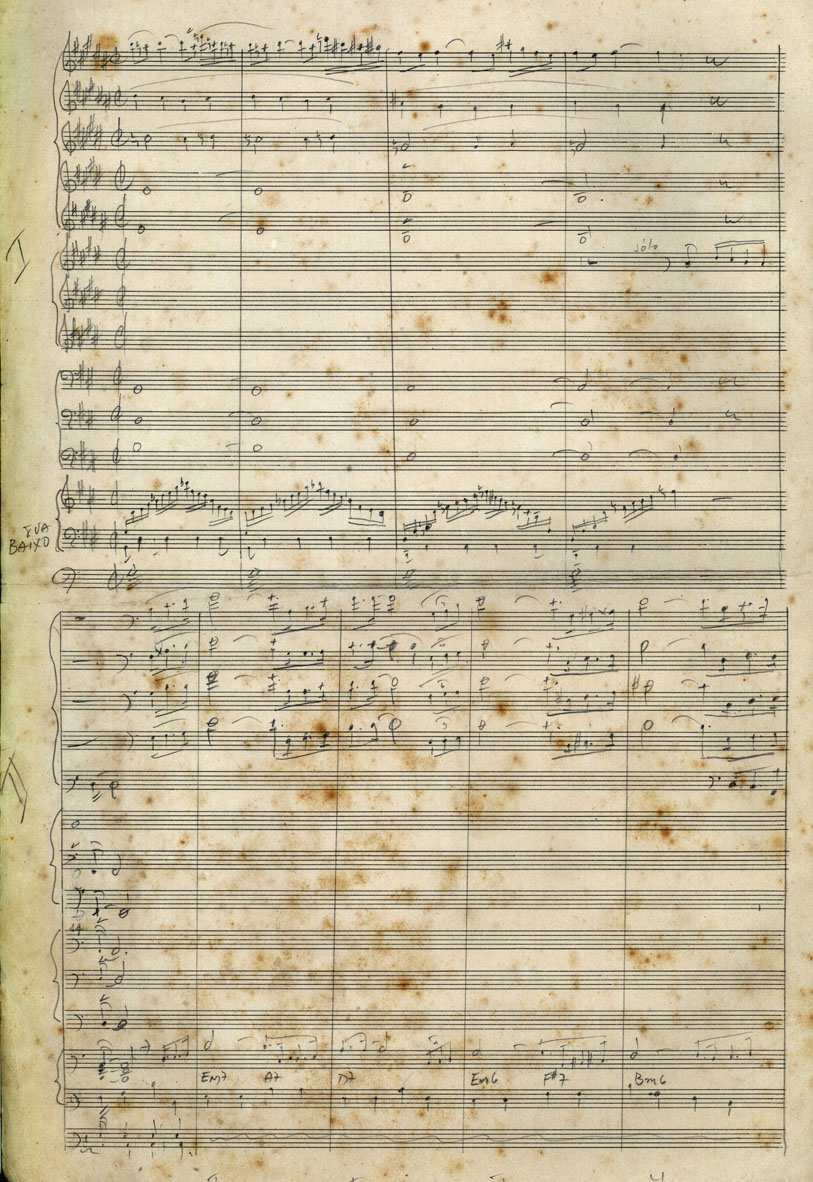 I
sólo
8VA
BAIXO
Em7 A7 D7 Em6 F#7 Bm6